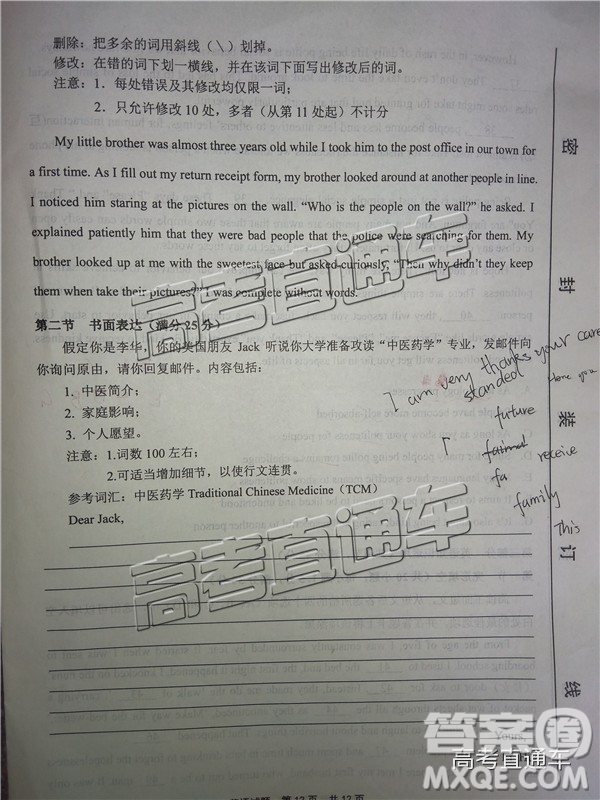 删除：把多余的词用斜线（\）划掉。
修改：在错的词下划一横线，并在该词下面写出修改后的词。
注意：1．每处错误及其修改均仅限一词；
2．只允许修改10处，多者（从第11处起）不计分
My little brother was almost three years old while I took him to the post office in our town for
a first time. As I fill out my return receipt form, my brother looked around at another people in line.
I noticed him staring at the pictures on the wall. “Who is the people on the wall?” he asked. I
explained patiently him that they were bad people that the police were searching for them. My
brother looked up at me with the sweetest face but asked curiously, “Then why didn’t they keep
them when take their pictures?” I was complete without words.
第二节 书面表达（满分25分）
假定你是李华，你的美国朋友 Jack 听说你大学准备攻读“中医药学”专业，发邮件向
你询问原由，请你回复邮件。内容包括：
1．中医简介；
2．家庭影响；
3．个人愿望。
注意：1.词数100左右；
2.可适当增加细节，以使行文连贯。
参考词汇：中医药学 Traditional Chinese Medicine（TCM）
Dear Jack,
I am very thanks your care
standed
future
receive
fa
family
This
密
封
装
订
线
高考直通车
高考直通车
答案圈
高考直通车
MXQE.COM